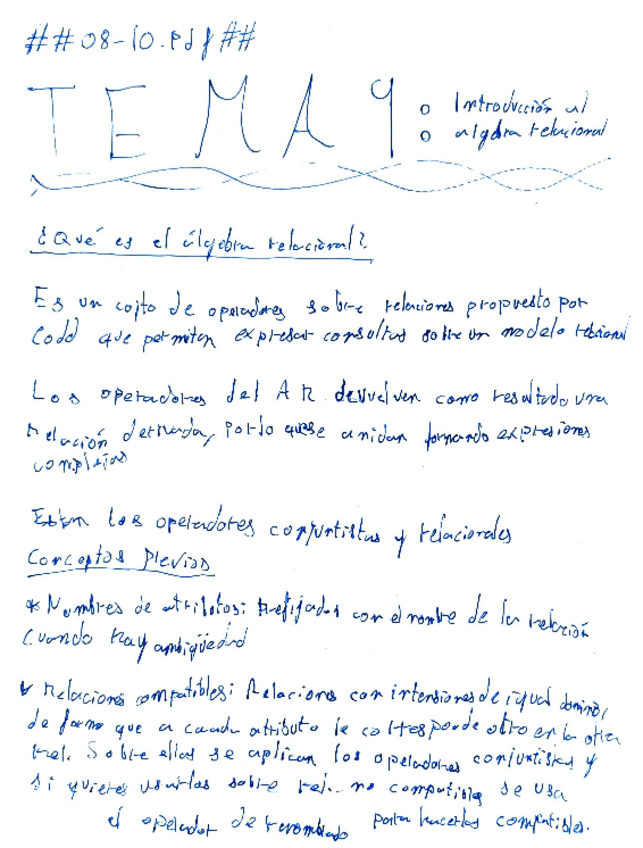 ##08-10.pdf##
TEMA 9: Introducción al
algebra relacional
¿Qué es el álgebra relacional?
Es un cojto de operadores sobre relaciones propuesto por
Codd que permiten expresar consultas sobre un modelo relacional
Los operadores del AR devuelven como resultado una
relación derivada, por lo que se anidan formando expresiones
complejas
Están los operadores conjuntistas y relacionales
Conceptos Previos
* Nombres de atributos: Prefijados con el nombre de la relación
cuando hay ambigüedad
* Relaciones compatibles: Relaciones con intensiones de igual dominio,
de forma que a cada atributo le corresponde otro en la otra
rel. Sobre ellas se aplican los operadores conjuntistas y
si quieres usarlos sobre rel. no compatibles se usa
el operador de renombrado para hacerlas compatibles.